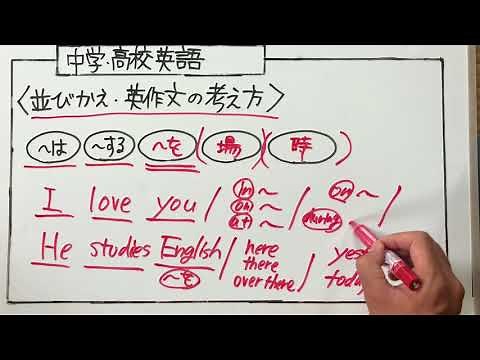 中学・高校英語
〈並びかえ・英作文の考え方〉
~は ~する ~を (場)(時)
I love you / in~ on~ at~ / on~ during /
He studies English / here there over there /
~を